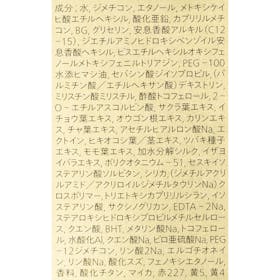 成分:水、ジメチコン、エタノール、メトキシケイ
ヒ酸エチルヘキシル、酸化亜鉛、カプリリルメチ
コン、BG、グリセリン、安息香酸アルキル(C12
-15)、ジエチルアミノヒドロキシベンゾイル
安息香酸ヘキシル、ビスエチルヘキシルオキシフェ
ノールメトキシフェニルトリアジン、PEG-100
水添ヒマシ油、セバシン酸ジイソプロピル、(パ
ルミチン酸/エチルヘキサン酸)デキストリン、
ミリスチン酸ミリスチル、酢酸トコフェロール、2-
O-エチルアスコルビン酸、サクラ葉エキス、イ
チョウ葉エキス、オウゴン根エキス、カリンエキ
ス、チャ葉エキス、アセチルヒアルロン酸Na、エ
クトイン、キハダ樹皮エキス、ツバキ種子
エキス、モモ葉エキス、加水分解シルク、イザヨ
イバラエキス、ポリクオタニウム-51、セスキイソ
ステアリン酸ソルビタン、シリカ、(ジメチルアク
リルアミド/アクリロイルジメチルタウリンNa)ク
ロスポリマー、トリエトキシカプリリルシラン、イソ
ステアリン酸、サクシノグリカン、EDTA-2Na、
ステアロキシヒドロキシプロピルメチルセルロー
ス、クエン酸、BHT、メタリン酸Na、トコフェロ
ール、水酸化Al、クエン酸Na、ピロ亜硫酸Na、PEG
-12ジメチコン、リン酸2Na、エルゴチオネイ
ン、リン酸Na、酸化スズ、フェノキシエタノール、
香料、酸化チタン、マイカ、赤227、黄5、黄4